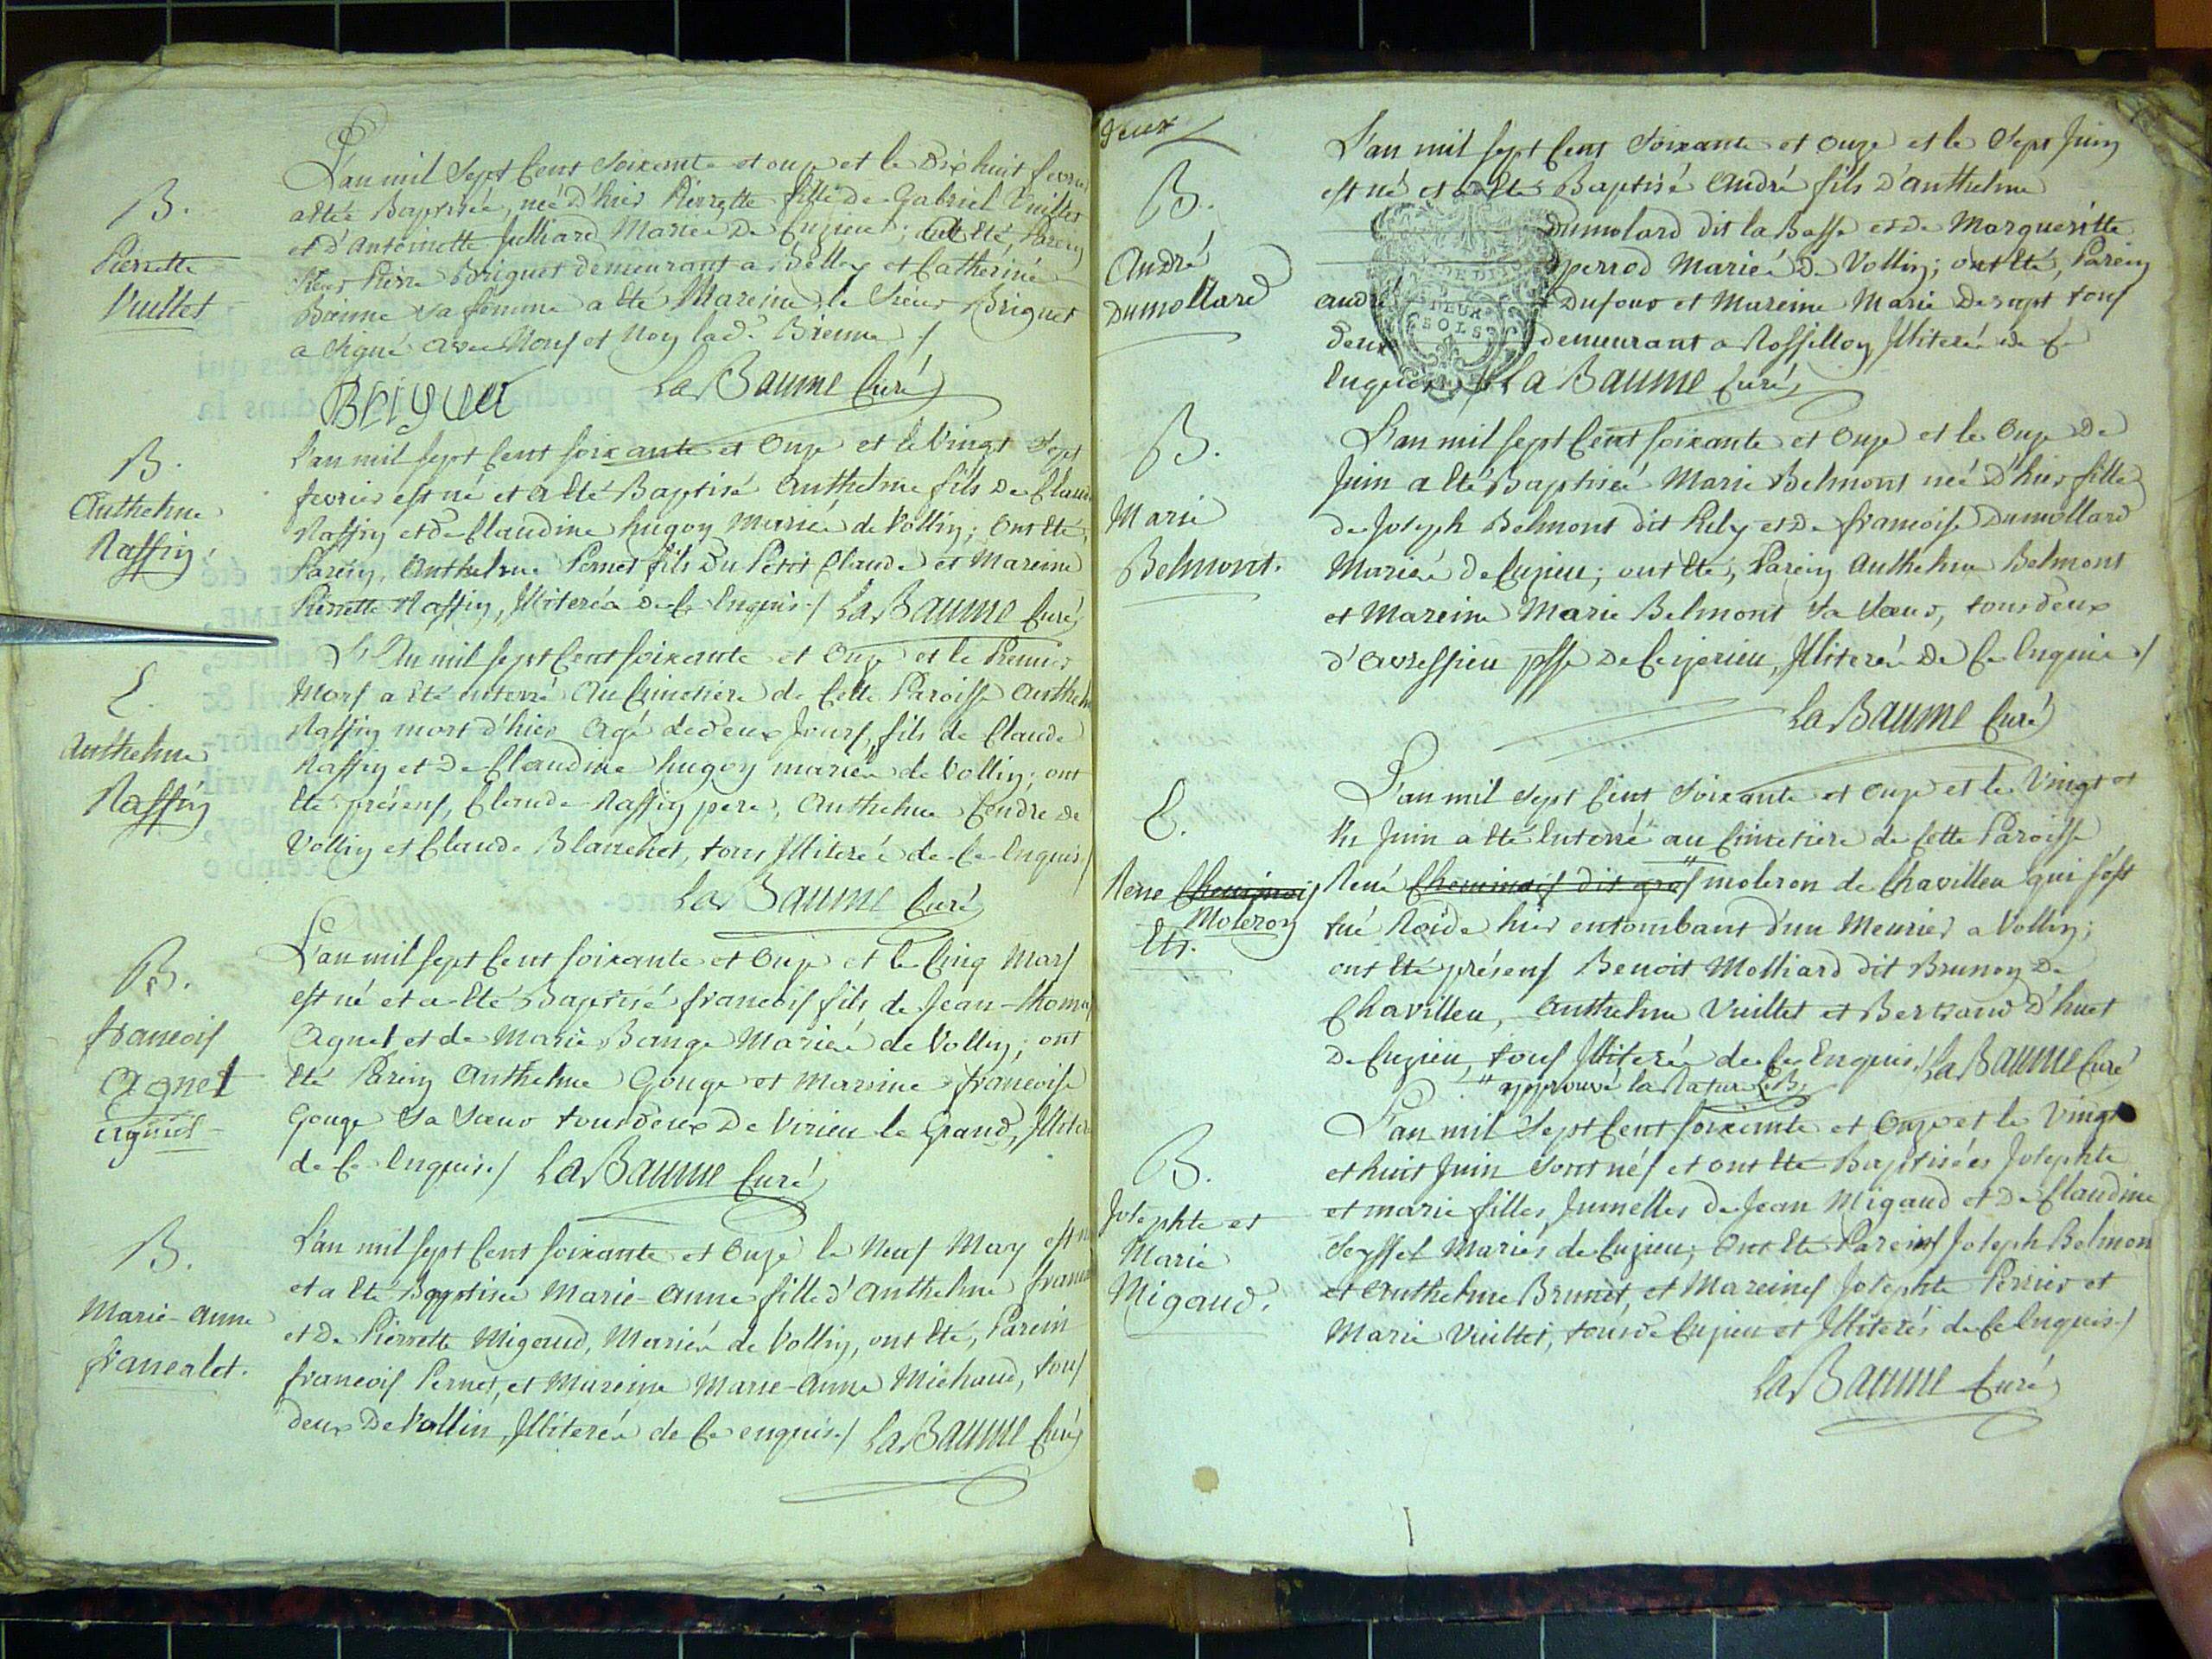 B.
Pierrette
Vuillet
L'an mil Sept Cent Soixante et onze et le Dix huit fevrier
a été Baptisée, neé d'hier Pierrette fille de Gabriel Vuillet
et d'Antoinette Julliard Mariés De Cuzieu; ont Eté, Parein
Sieur Pierre Briguet demeurant a Belley et Catherine
Bienne sa femme a Eté Mareine, le Sieur Briguet
a Signé avec Nous et Non lad.e Bienne /
Briguet La Baume Curé
B.
Anthelme
Raffin
L'an mil Sept Cent Soixante et Onze et le Vingt Sept
fevrier est né et a Eté Baptisé Anthelme fils De Claude
Raffin et de Claudine hugon Mariés de Vollin; Ont Eté,
Parein, Anthelme Pernet fils Du Petit Claude et Mareine
Pierrette Raffin, Illiterés de Ce Enquis / La Baume Curé
E.
Anthelme
Raffin
L'An mil Sept Cent Soixante et Onze et le Premier
Mars a Eté enterré Au Cimetiere de Cette Paroisse Anthelme
Raffin mort d'hier Agé de deux Jours, fils de Claude
Raffin et De Claudine hugon mariés de Vollin; ont
Eté présens, Claude Raffin pere, Anthelme Cendre De
Vollin et Claude Blanchet, tous Illiterés de Ce Enquis /
La Baume Curé
B.
francois
Agnet
agniel
L'an mil Sept Cent Soixante et Onze et le Cinq Mars
est né et a Eté Baptisé francois fils de Jean-thomas
Agnet et de Marie Bange Mariés de Vollin; ont
Eté Parein Anthelme Gouge et Mareine francoise
Gouge Sa Sœur tous deux De Virieu le Grand, Illiterés
de Ce Enquis / La Baume Curé
B.
Marie-Anne
francalet.
L'an mil Sept Cent Soixante et Onze le Neuf May est née
et a Eté Baptisée Marie-Anne fille d'Anthelme francalet
et De Pierrette Migaud, Mariés de Vollin, ont Eté, Parein
francois Pernet, et Mareine Marie-Anne Michaud, tous
deux De Vollin, Illiterés de Ce enquis / La Baume Curé
Deux
B.
André
Dumollard
L'an mil Sept Cent Soixante et Onze et le Sept Juin
est né et a Eté Baptisé André fils d'Anthelme
Dumolard dit la Basse et de Marguerite
perrod Mariés De Vollin; ont Eté, Parein
andré Dufour et Mareine Marie tous
deux demeurant a Rossillon Illiterés de Ce
Enquis / La Baume Curé
DEUX
SOLS
B.
Marie
Belmont.
L'an mil Sept Cent Soixante et Onze et le Onze De
Juin a Eté Baptiseé Marie Belmont neé D'hier fille
de Joseph Belmont dit et De francoise Dumollard
Mariés de Cuzieu; ont Eté, Parein Anthelme Belmont
et Mareine Marie Belmont Sa Sœur, tous deux
d'avressieu psse De Ceyzerieu, Illiterés De Ce Enquis /
La Baume Curé
E.
Rene Cheminois
Moleron
Etr.
L'an mil Sept Cent Soixante et Onze et le Vingt et
Un Juin a Eté Enterré au Cimetiere de Cette Paroisse
René Cheminois dit gros moleron de Chavilleu qui s'est
tué Roide hier en tombant d'un Meurier a Vollin;
ont Eté présens Benoit Molliard dit Brunon De
Chavilleu, Anthelme Vuillet et Bertrand d'huet
De Cuzieu, tous Illiterés de Ce Enquis / La Baume Curé
" approuvé la Rature LB.
B.
Josephte et
Marie
Migaud.
L'an mil Sept Cent Soixante et Onze et le Vingt
et huit Juin Sont nés et ont Eté Baptisées Josephte
et marie filles Jumelles de Jean Migaud et De Claudine
Seyssel Mariés de Cuzieu; Ont Eté Pareins Joseph Belmon
et Anthelme Brunet, et Mareines Josephte Perrier et
Marie Vuillet, tous de Cuzieu et Illiterés de Ce Enquis /
La Baume Curé